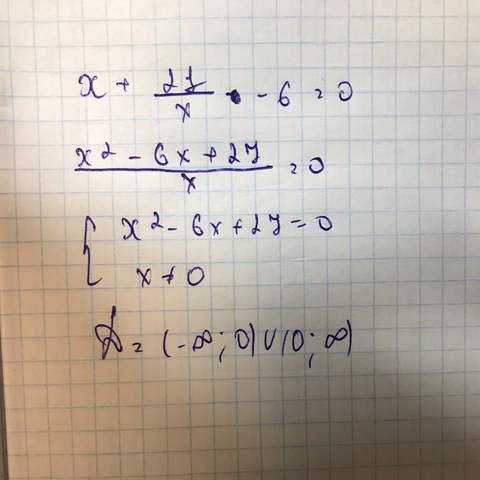 x + 27/x - 6 = 0
(x² - 6x + 27)/x = 0
{ x² - 6x + 27 = 0
x ≠ 0
D = (-∞; 0) ∪ (0; ∞)